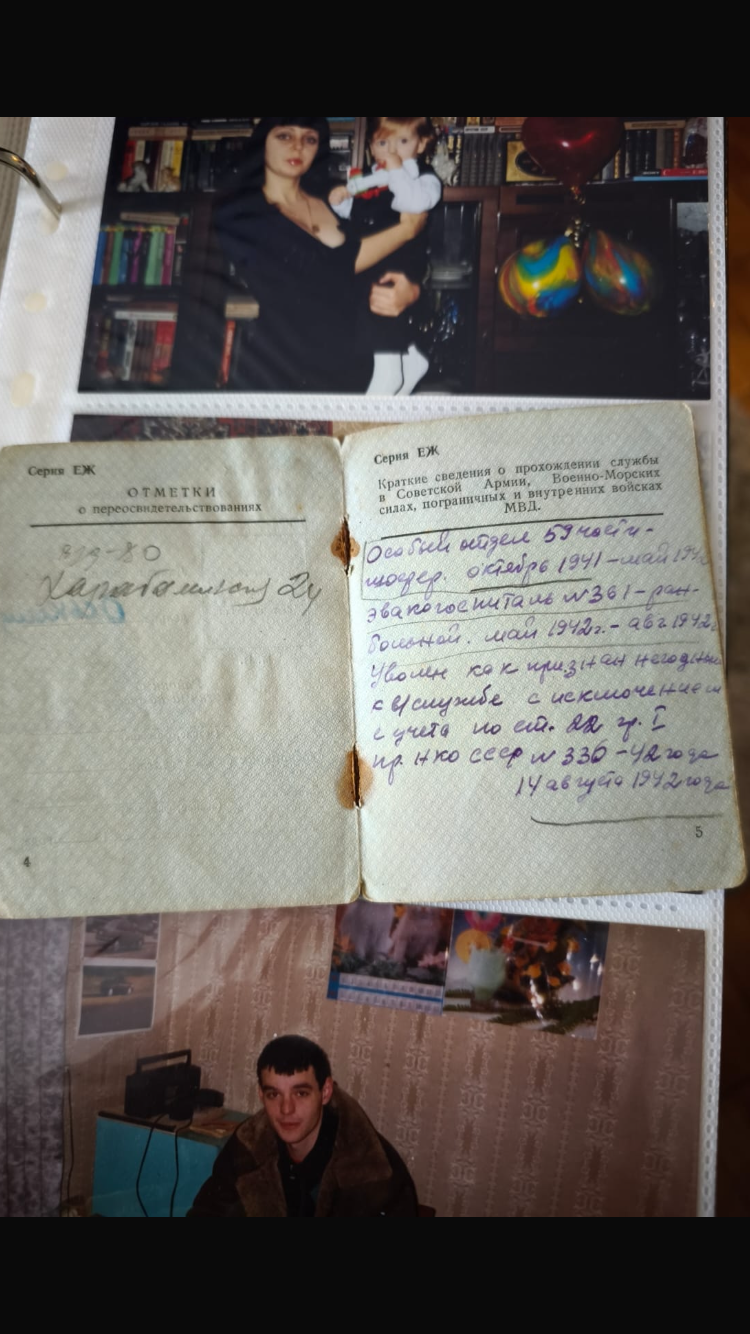 Серия ЕЖ
ОТМЕТКИ
о переосвидетельствованиях
4
Серия ЕЖ
Краткие сведения о прохождении службы
в Советской Армии, Военно-Морских
силах, пограничных и внутренних войсках
МВД.
Особый отдел 59 части-
шофер. октябрь 1941-май 1942
эвакогоспиталь №361-ран-
больной. май 1942г.-авг 1942
Уволен как признан негодным
к в/службе с исключением
с учета по ст. 22 гр. I
пр. НКО СССР № 336-42 года
14 августа 1942 года
5